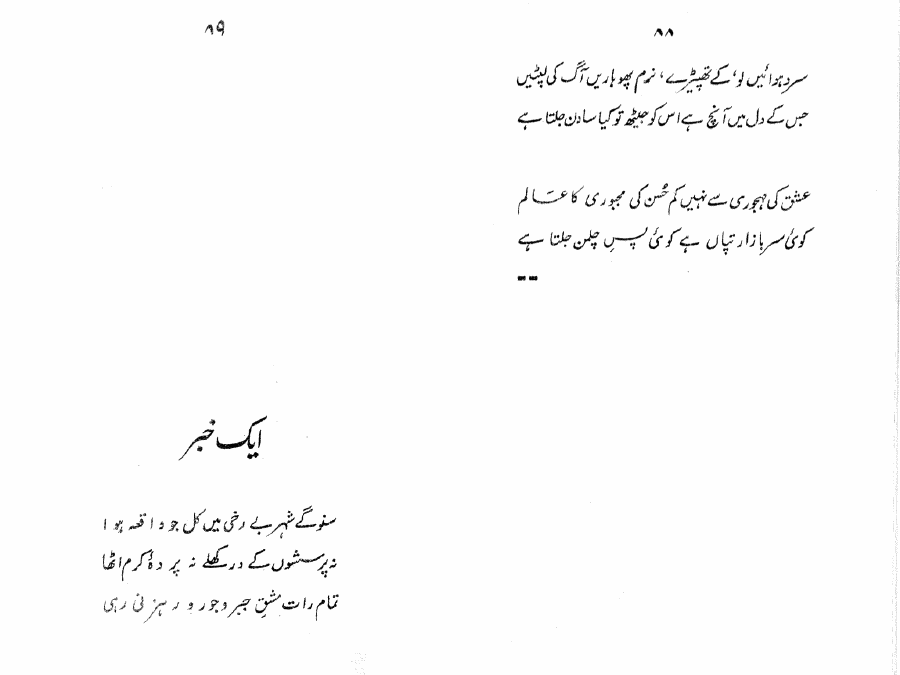 ۸۸
سرد ہوائیں لو، کے تھپیڑے، نرم پھوہاریں آگ کی لپٹیں
جس کے دل میں آنچ ہے اس کو جیٹھ تو کیا ساون جلتا ہے
عشق کی مہجوری سے نہیں کم حُسن کی مجبوری کا عالم
کوئی سرِ بازار تپاں ہے کوئی پسِ چلمن جلتا ہے
۸۹
ایک خبر
سنو گے شہرِ بے رخی میں کل جو واقعہ ہوا
نہ پرسشوں کے در کھلے نہ پردۂ کرم اٹھا
تمام رات مشقِ جبر و جور و رہزنی رہی